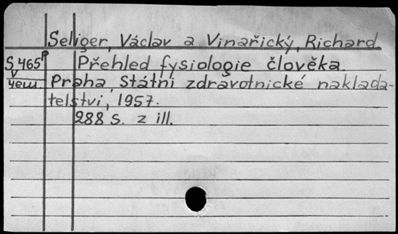 Seliger, Václav a Vinařický, Richard
S 465 P Přehled fysiologie člověka.
v
чеш Praha, Státní zdravotnické naklada-
telství, 1957.
288 s. z ill.